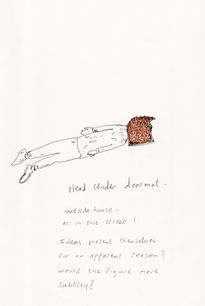 Head under doormat.
outside house.
or in the street?
Ideas present themselves
for no apparent reason?
would the figure move
subtley?